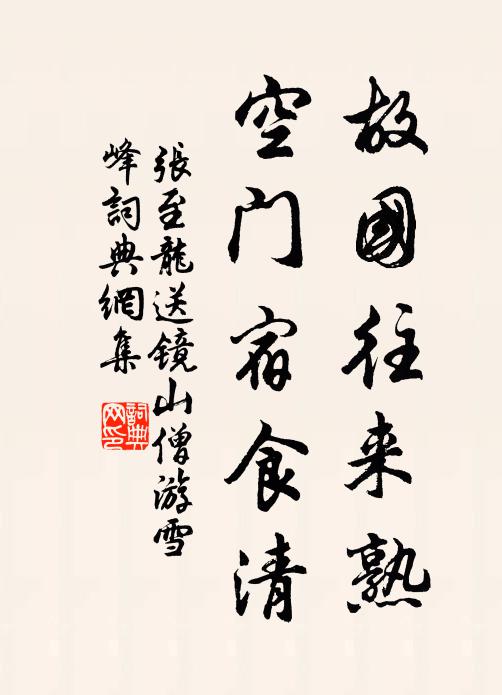 故國往来熟
空门宿食清
張至龍送镜山僧游雪
峰詞典網集
詞典网印